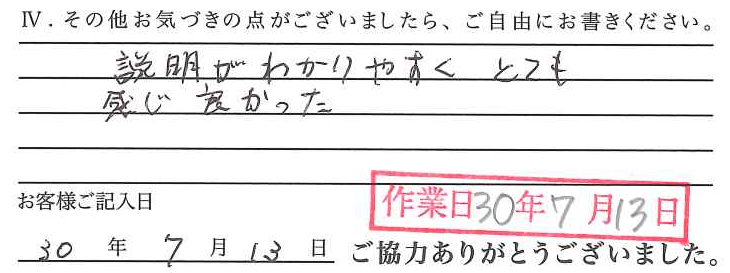 Ⅳ．その他お気づきの点がございましたら、ご自由にお書きください。
説明がわかりやすく とても
感じ良かった
お客様ご記入日
作業日30年7月13日
30 年 7 月 13 日 ご協力ありがとうございました。